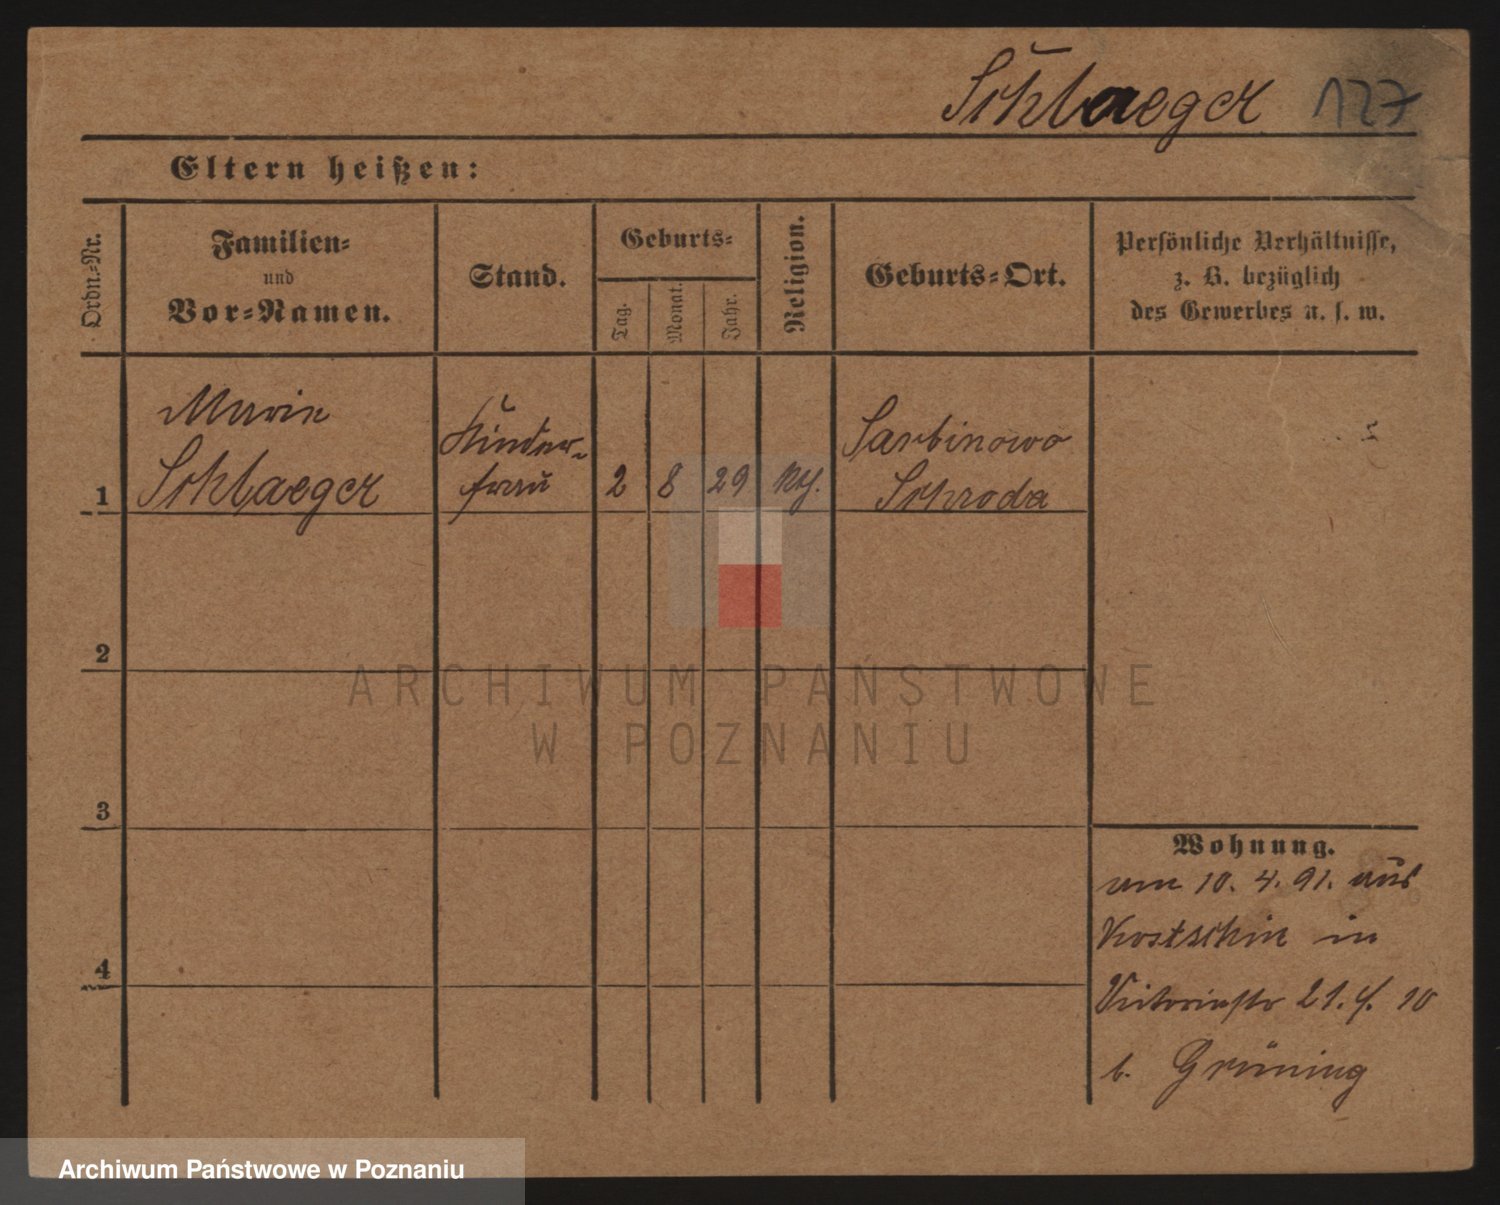 Schlaeger 127
Eltern heißen:
Ordn.=Nr.
Familien=
und
Vor=Namen.
Stand.
Geburts=
Tag.
Monat.
Jahr.
Religion.
Geburts=Ort.
Persönliche Verhältnisse,
z. B. bezüglich
des Gewerbes u. s. w.
Marie
Schlaeger
Kinder-
frau
1
2 8 29
Sarbinowo
Schroda
2
ARCHIWUM PAŃSTWOWE
W POZNANIU
3
Wohnung.
am 10. 4. 91. aus
Kostschin in
Victoriastr 21. 10
b. Grüning
4
Archiwum Państwowe w Poznaniu